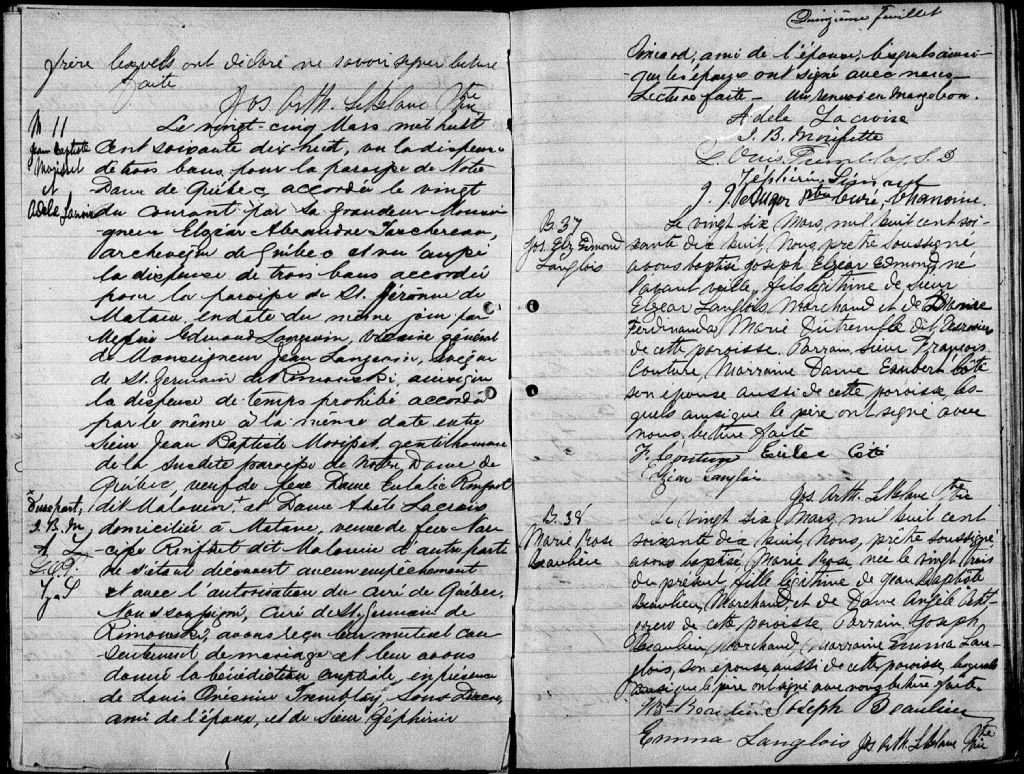 frère lesquels ont déclaré ne savoir signer lecture
faite
Jos Arth. Leblanc Ptre
Vic
M 11
Jean Baptiste
et
Adèle Lacroix
Le vingt-cinq Mars mil huit
cent soixante dix huit, vu la dispense
de trois bans pour la paroisse de Notre
Dame de Québec, accordée le vingt
du courant par Sa Grandeur Monsei-
gneur Elzéar Alexandre Taschereau,
archevêque de Québec et vu aussi
la dispense de trois bans accordée
pour la paroisse de St. Jérôme de
Matane, en date du même jour par
Messire Edmond Langevin, vicaire général
de Monseigneur Jean Langevin, évêque
de St. Germain de Rimouski, ainsi que
la dispense de temps prohibé accordée
par le même à la même date entre
Sieur Jean Baptiste gentilhomme
de la susdite paroisse de Notre Dame de
Québec, veuf de feue Dame Eulalie Rinfret
dit Malouin, + et Dame Adèle Lacroix
domiciliée à Matane, veuve de feu Nar-
cisse Rinfret dit Malouin d'autre part
+ d'une part,
J. B. M
A L
ne s'étant découvert aucun empêchement
et avec l'autorisation du curé de Québec,
Nous soussigné, curé de St. Germain de
Rimouski, avons reçu leur mutuel con
sentement de mariage et leur avons
donné la bénédiction nuptiale, en présence
de Louis Onésime Tremblay, Sous-Diacre,
ami de l'époux, et de Sieur Zéphirin
Quinzième feuillet
ami de l'épouse, lesquels ainsi
que les époux ont signé avec nous
Lecture faite - Un renvoi en marge bon.
Adèle Lacroix
J. B.
Louis Tremblay, S. D
Zéphirin
Ptre Curé, Chanoine.
B. 37
Jos. Elz Edmond
Langlois
Le vingt six Mars, mil huit cent soi-
xante dix huit, Nous, prêtre soussigné
avons baptisé Joseph Elzéar Edmond, né
l'avant veille, fils légitime de Sieur
Elzéar Langlois, Marchand et de Dame
Ferdinanda Marie Dutremble dit
de cette paroisse. Parrain, Sieur François
Couture, Marraine Dame Côté
son épouse aussi de cette paroisse, les-
quels ainsi que le père ont signé avec
nous, lecture faite
F. Couture Côté
Elzéar Langlois
Jos Arth. Leblanc Ptre
Vic
B. 38
Marie Rose
Beaulieu
Le vingt six Mars, mil huit cent
soixante dix huit, Nous, prêtre soussigné
avons baptisé Marie Rose née le vingt trois
du présent fille légitime de Jean Baptiste
Beaulieu, Marchand, et de Dame Angèle
de cette paroisse. Parrain, Joseph
Beaulieu Marchand, Marraine Emma Lan-
glois, son épouse, aussi de cette paroisse, lesquels
ainsi que le père ont signé avec nous lecture faite.
Beaulieu Joseph Beaulieu
Emma Langlois Jos Arth. Leblanc Ptre
Vic